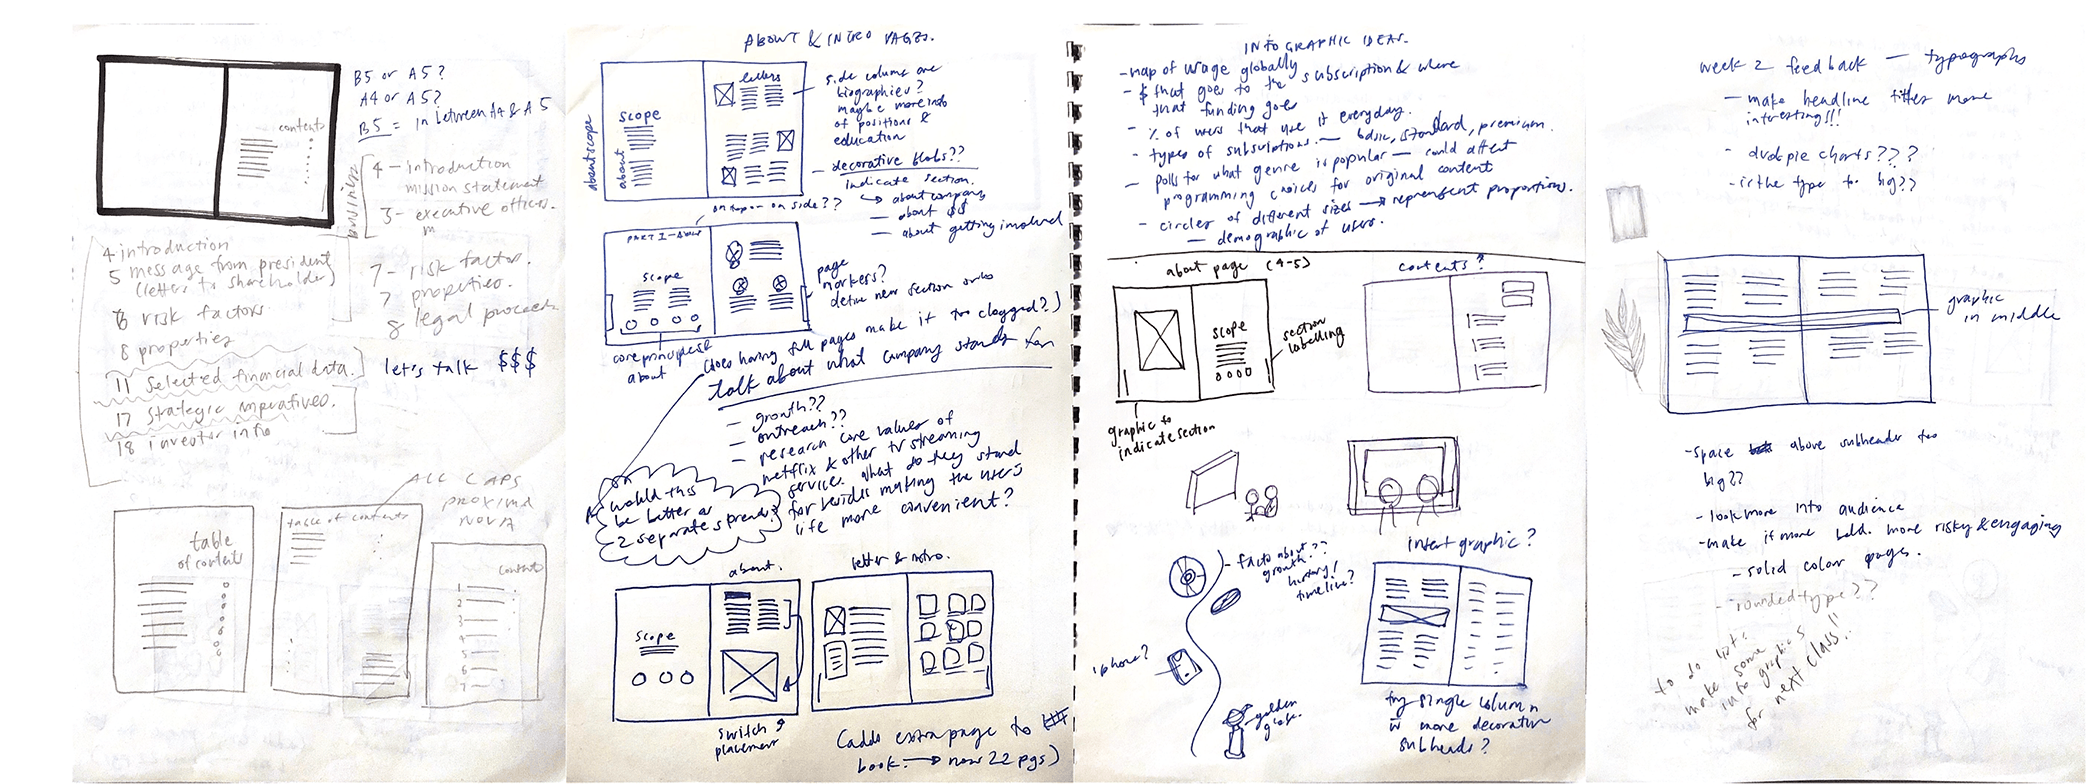 contents
B5 or A5?
A4 or A5?
B5 = in between A4 & A5
business
4 - introduction
mission statement
3 - executive offices.
m
4 introduction
5 message from president
(letters to shareholder)
risk factors
8 properties
11 selected financial data.
17 strategic imperatives.
18 investor info
7 - risk factor.
7 properties.
8 legal proceed
let's talk $$$
ALL CAPS
PROXIMA
NOVA
table
of contents
table of contents
contents
1
2
3
4
5
6
7
ABOUT & INTRO PAGES.
about scope
scope
about
letters
side column are
biographies?
maybe more info
of positions &
education
decorative blobs??
indicate section.
→ about company
— about $$
— about getting involved
on top or on side??
PART I - ABOUT
scope
page
markers?
define new section
core principles &
about
(does having full pages make it too clogged?)
talk about what company stands for
— growth??
— outreach??
— research core values of
netflix & other tv streaming
service. What do they stand
for besides making the users
life more convenient?
would this
be better as
2 separate spreads?
about.
scope
switch
placement
letter & intro.
(adds extra page to
book. → now 22 pgs)
INFOGRAPHIC IDEAS.
- map of usage globally
- $ that goes to the subscription & where
that funding goes
- % of users that use it everyday.
- types of subscriptions. — basic, standard, premium.
- polls for what genre is popular — could affect
programming choices for original content
- circles of different sizes → represent proportions.
— demographic of users.
about page (4-5)
scope
section
labelling
graphic to
indicate section
contents?
- facts about
growth??
history/
timeline?
iphone?
golden
globe.
insert graphic?
try single column
w more decorative
subheads?
week 2 feedback — typography
- make headline titles more
interesting!!!
- dvd pie charts???
- is the type to big??
graphic
in middle
- space above subheader too
big??
- look more into audience
- make it more bold. more risky & engaging
- solid color pages.
- rounded type??
to do list:
make some
info graphics
for next class!!